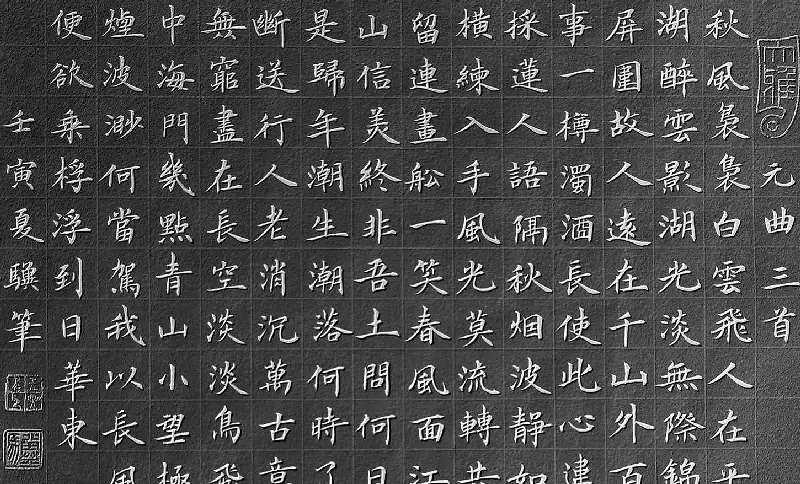 元曲三首
秋風裊裊白雲飛人在平
湖醉雲影湖光淡無際錦
屏圍故人遠在千山外百
事一樽濁酒長使此心違
採蓮人語隔秋烟波靜如
橫練入手風光莫流轉共
留連畫舩一笑春風面江
山信美終非吾土問何日
是歸年潮生潮落何時了
斷送行人老消沉萬古意
無窮盡在長空淡淡鳥飛
中海門幾點青山小望極
煙波渺何當駕我以長風
便欲乘桴浮到日華東
壬寅夏驥筆